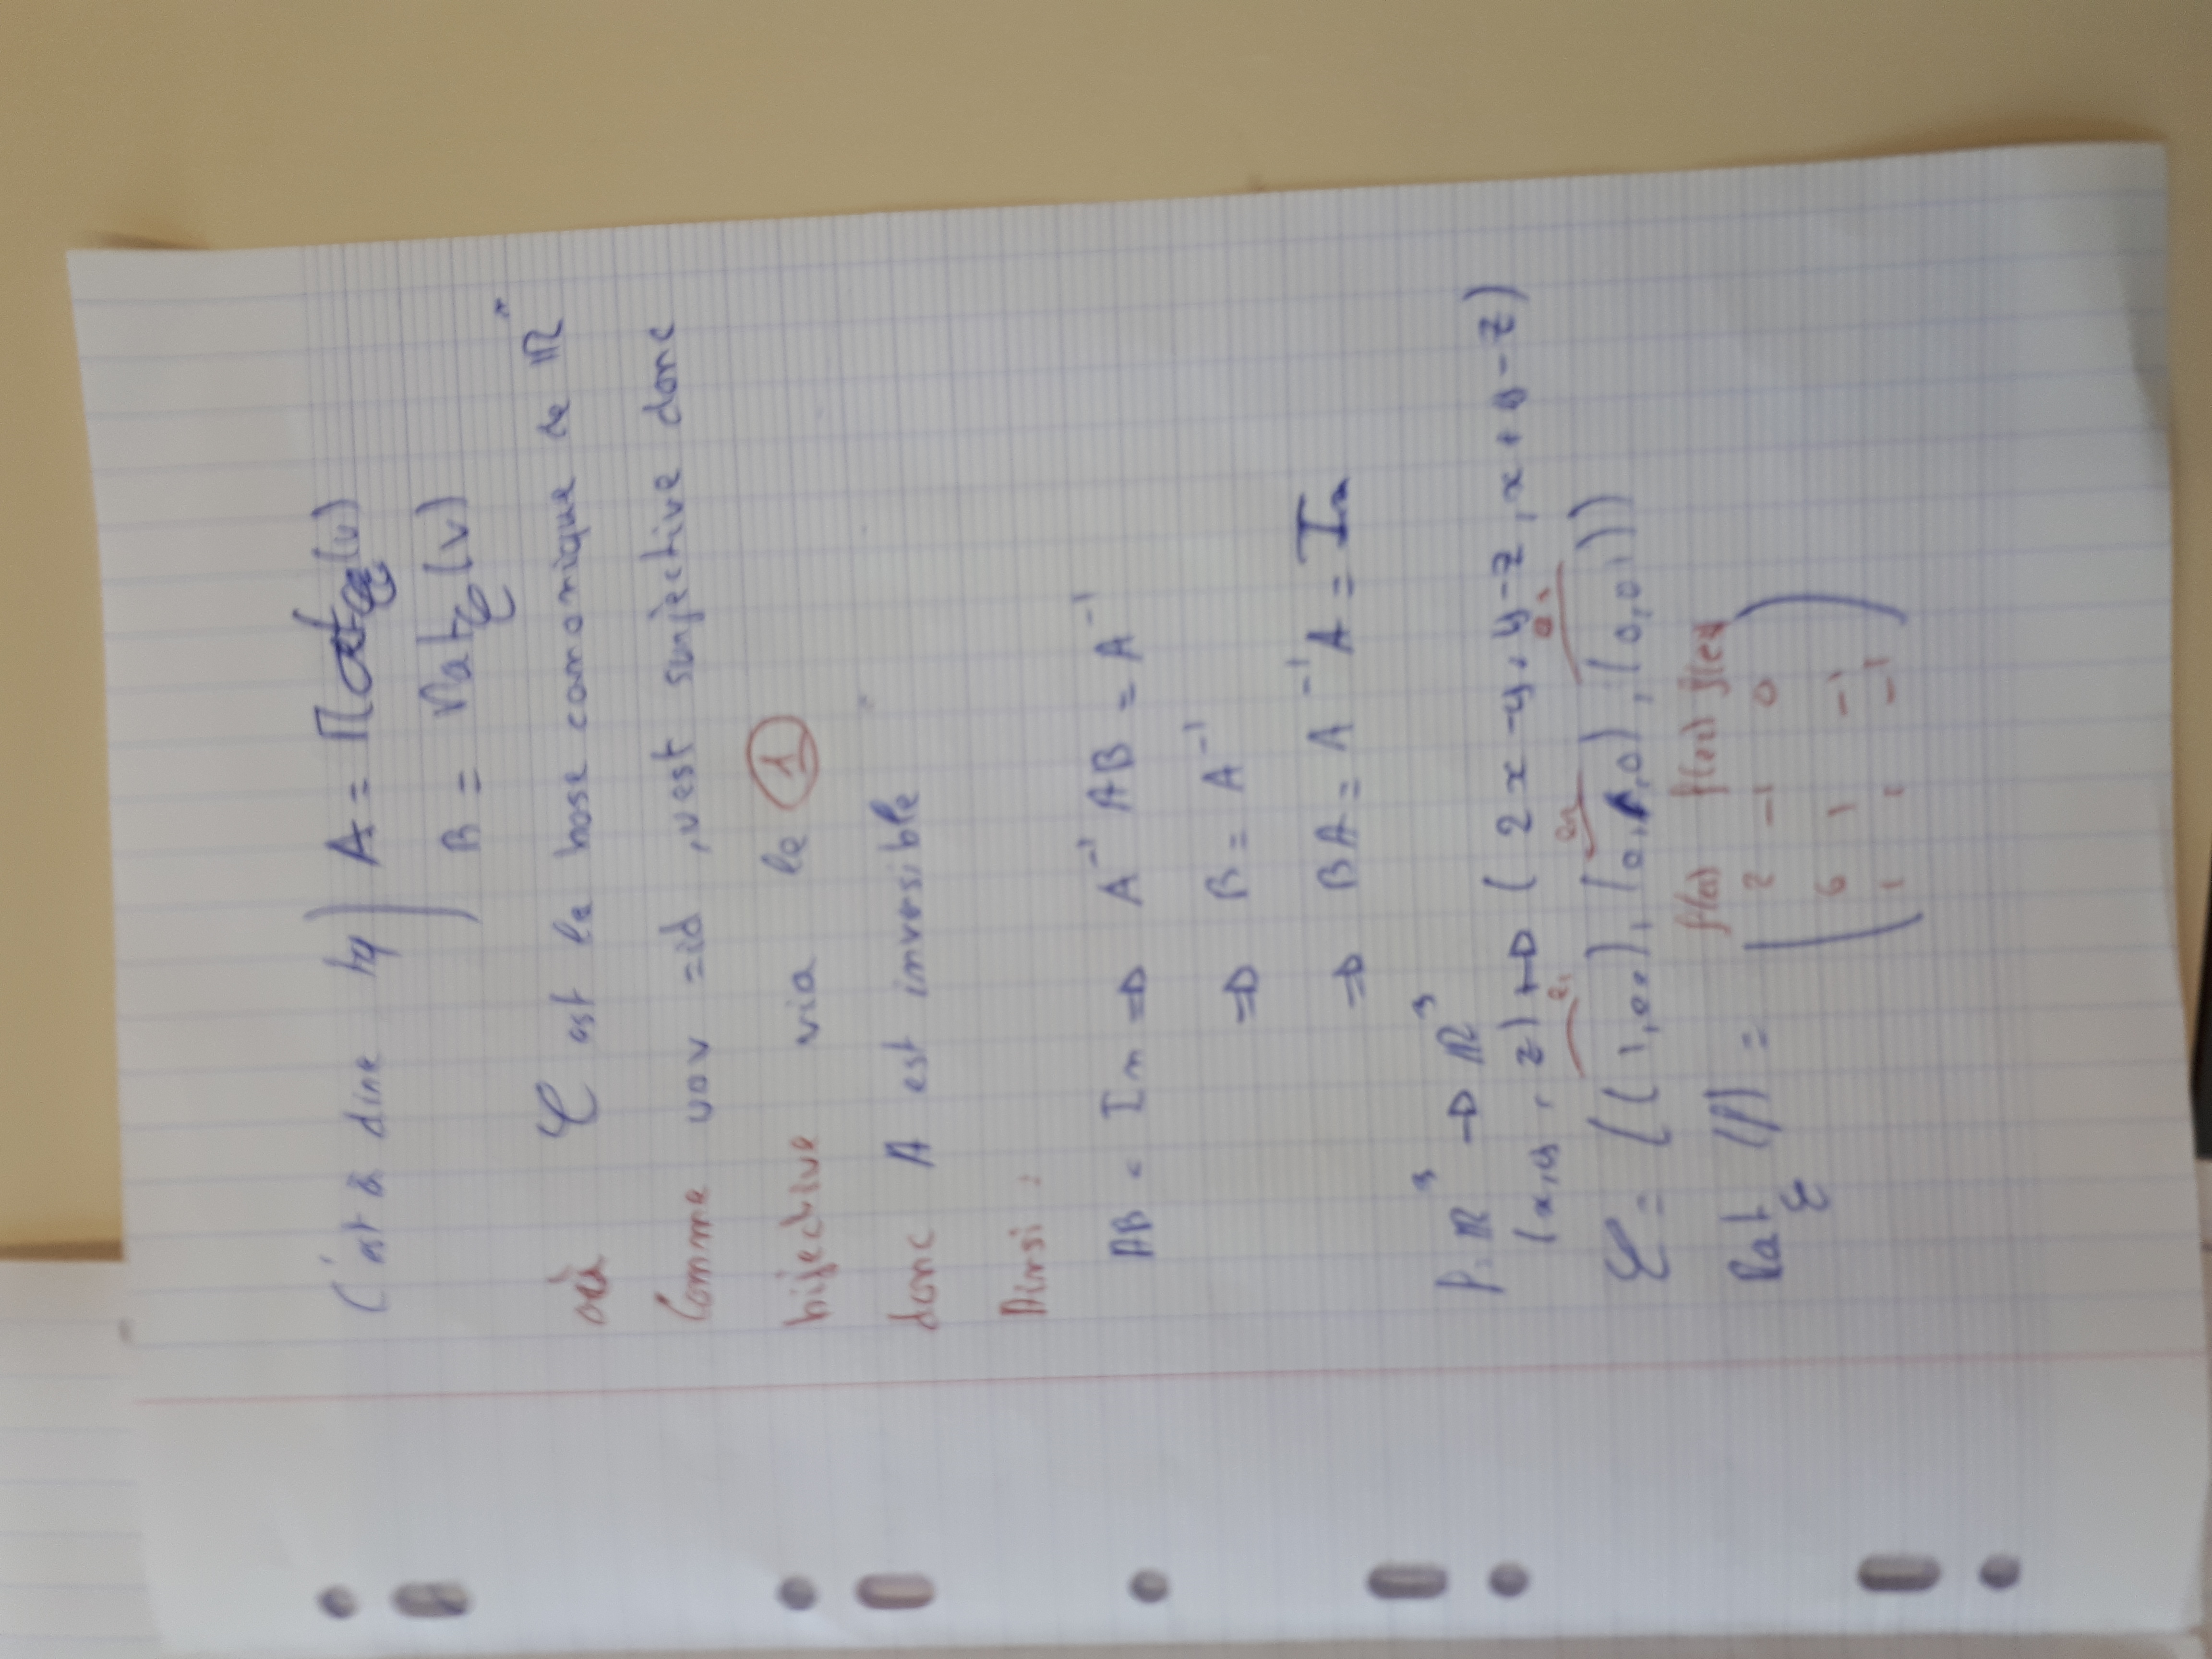 C'est à dire tq ) A = Mat𝒞(u)
B = Mat𝒞(v)
où 𝒞 est la base canonique de ℝⁿ
Comme uov = id , u est surjective donc
bijective via le ①
donc A est inversible
Ainsi :
AB = In ⇒ A⁻¹AB = A⁻¹
⇒ B = A⁻¹
⇒ BA = A⁻¹A = In
f: ℝ³ → ℝ³
(x,y,z) ↦ (2x-y, y-z, x+y-z)
e₁ e₂ e₃
𝒞 = ((1,0,0), (0,1,0), (0,0,1))
f(e₁) f(e₂) f(e₃)
Mat𝒞 (f) = ( 2 -1 0
0 1 -1
1 1 -1 )